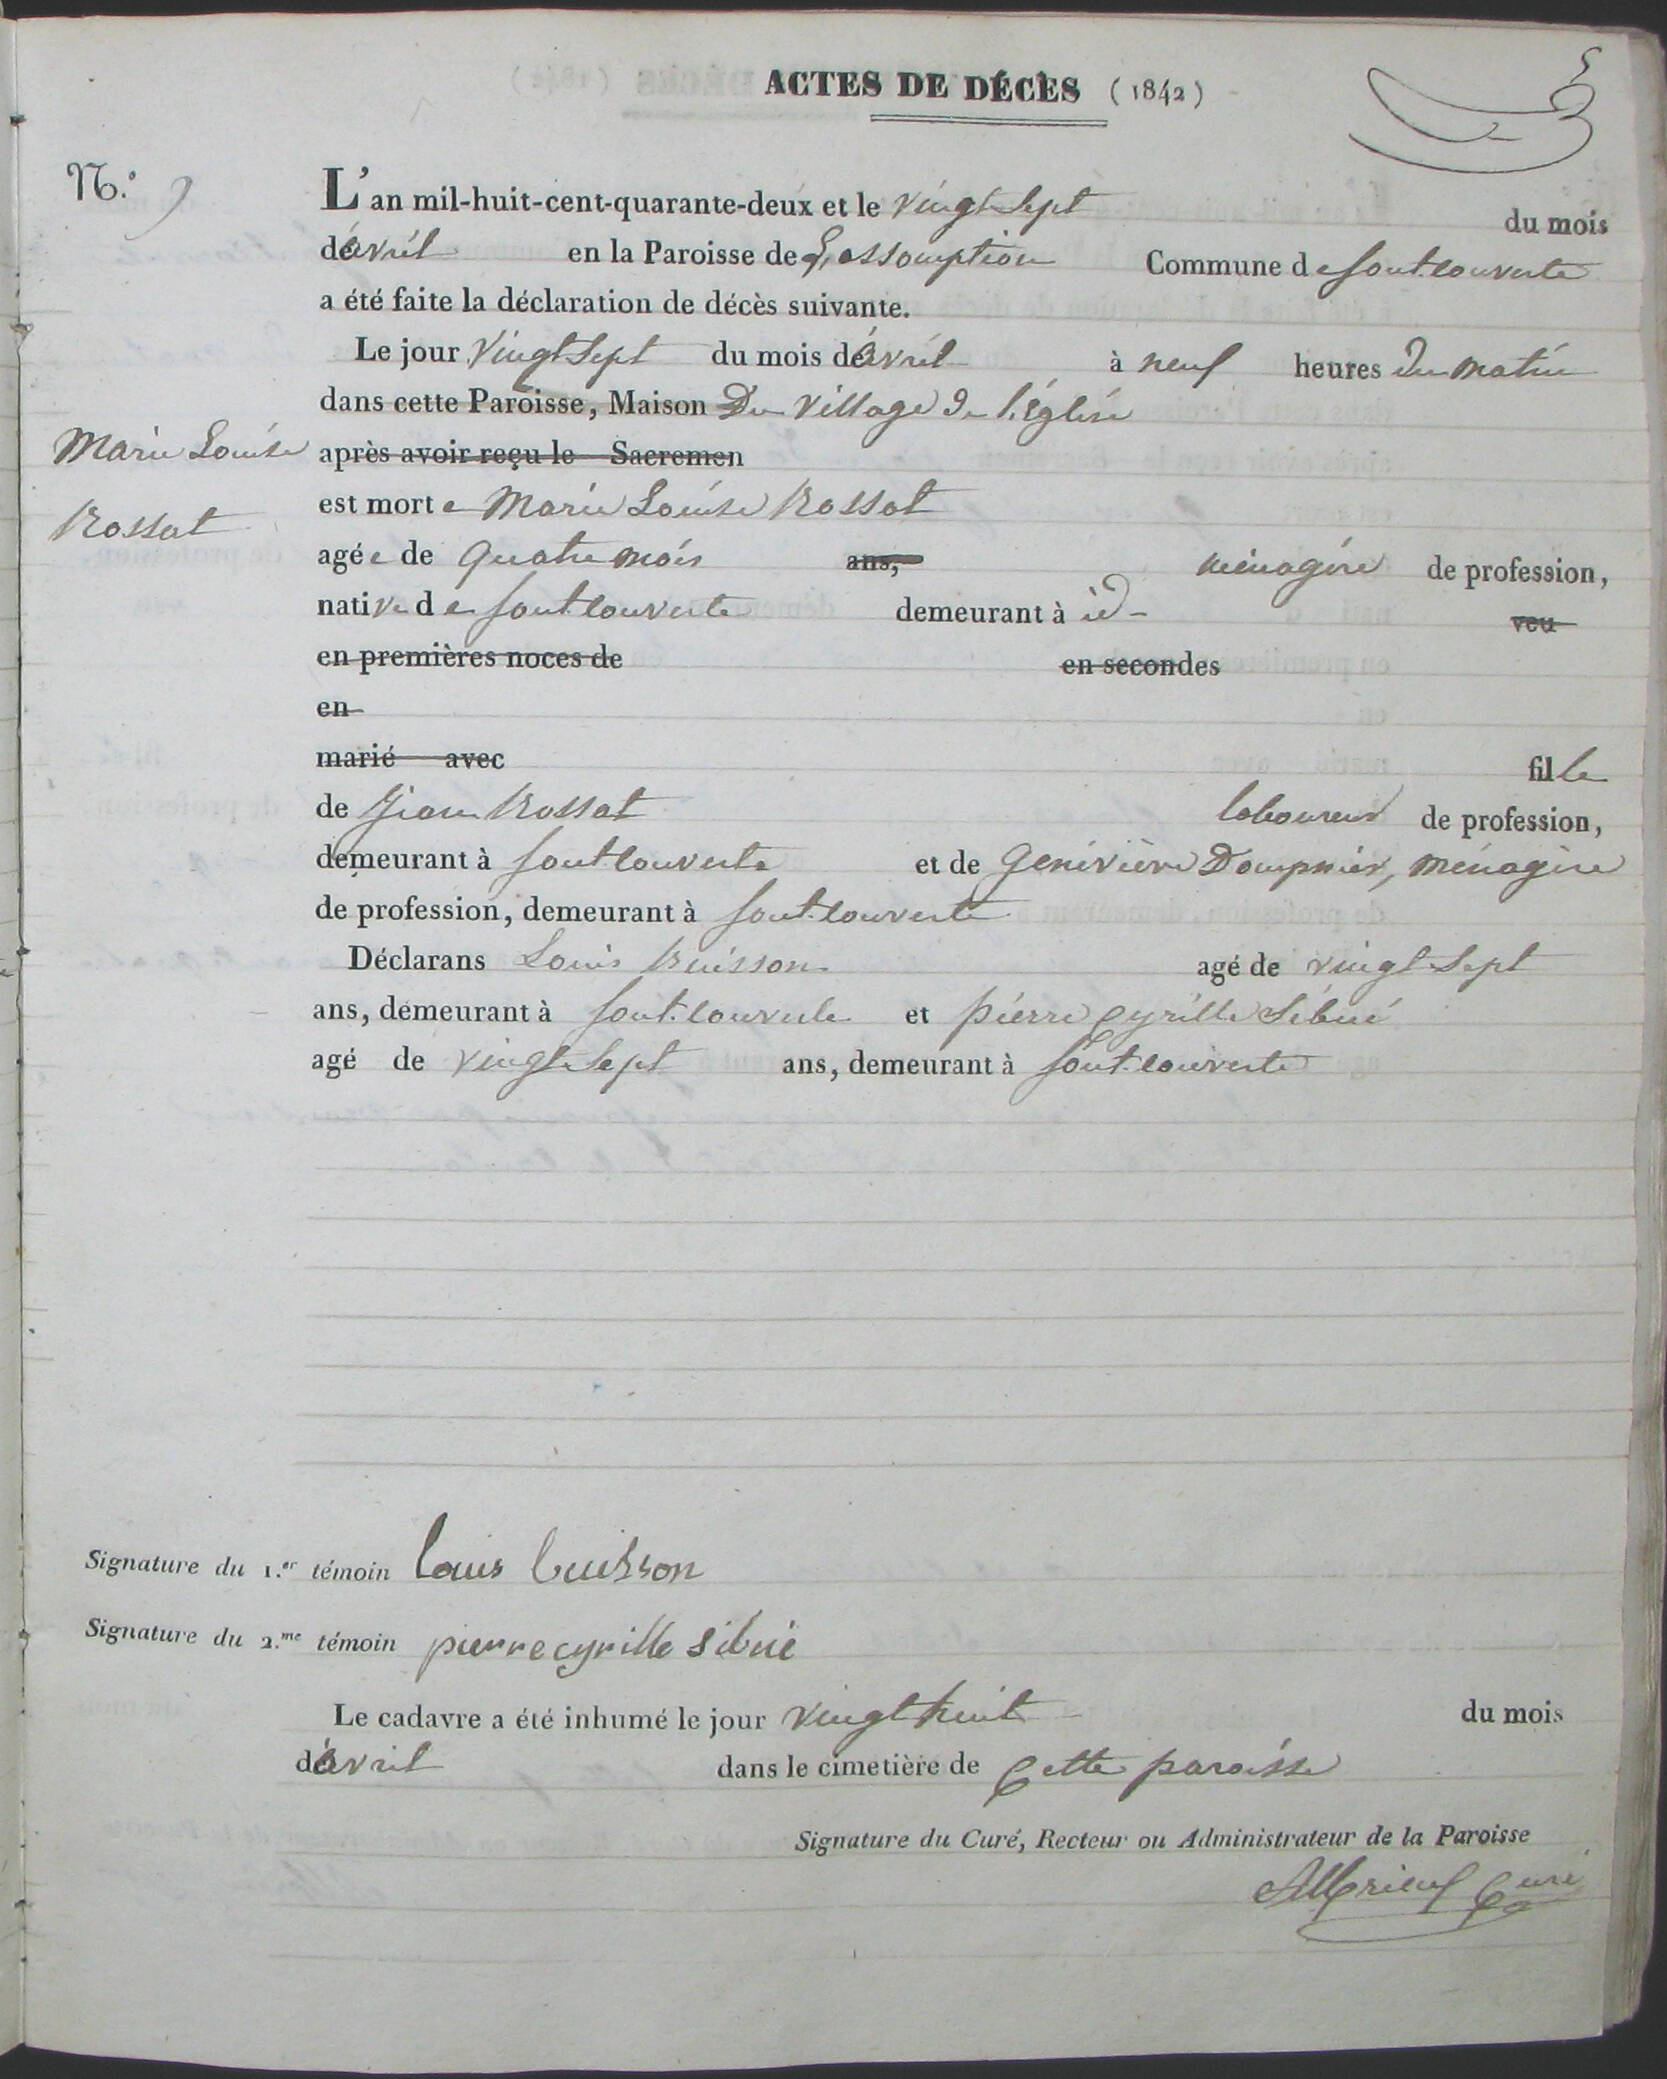 ACTES DE DÉCÈS (1842)
5
N.º 9
L'an mil-huit-cent-quarante-deux et le vingt sept du mois
d'avril en la Paroisse de L'assomption Commune de font-couverte
a été faite la déclaration de décès suivante.
Le jour vingt sept du mois d'avril à neuf heures du matin
dans cette Paroisse, Maison Du village de l'église
Marie Louise
après avoir reçu le Sacremen
Rossat
est morte Marie Louise Rossat
agée de quatre mois ans, ménagère de profession,
native de font-couverte demeurant à id- veu
en premières noces de en secondes
en
marié avec fille
de Jean Rossat laboureur de profession,
demeurant à font-couverte et de Geneviève Dompnier, ménagère
de profession, demeurant à font-couverte
Déclarans Louis Buisson agé de vingt sept
ans, demeurant à font-couverte et pierre cyrille Sibué
agé de vingt sept ans, demeurant à font-couverte
Signature du 1.er témoin louis buisson
Signature du 2.me témoin pierre cyrille sibué
Le cadavre a été inhumé le jour vingt huit du mois
d'avril dans le cimetière de cette paroisse
Signature du Curé, Recteur ou Administrateur de la Paroisse
Curé